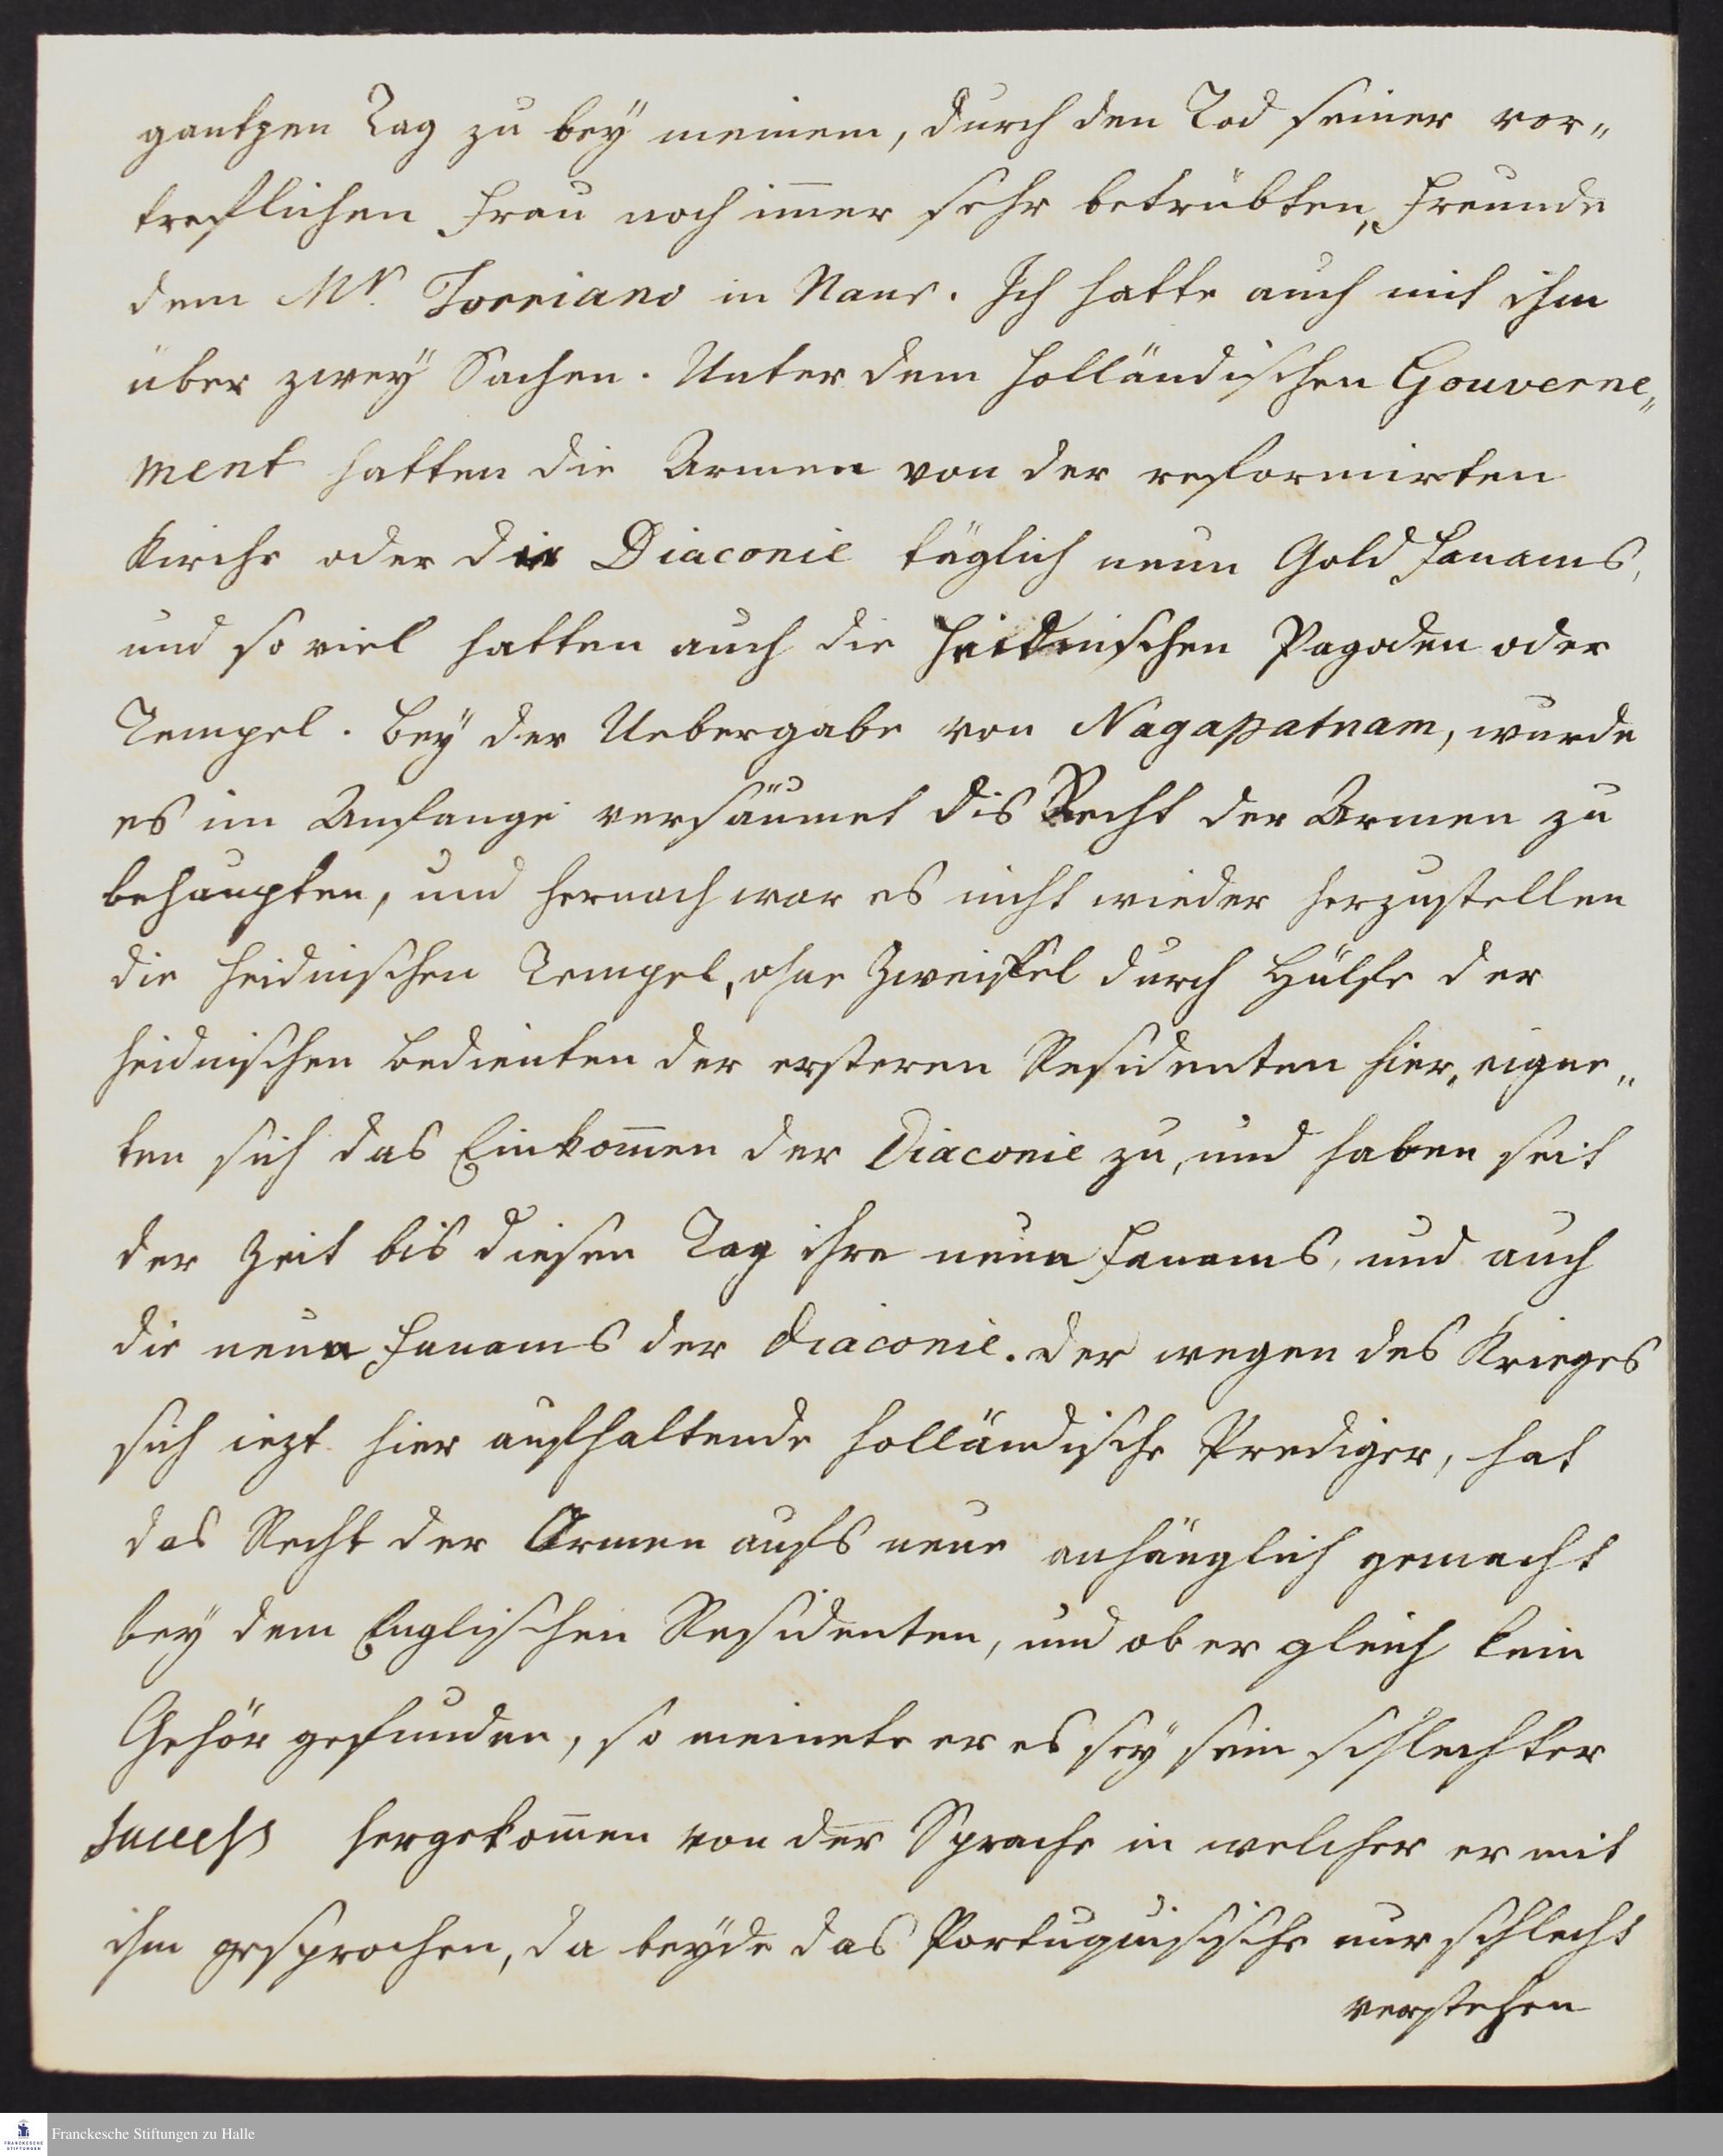 gantzen Tag zu bey meinem, durch den Tod seiner vor„
treflichen Frau noch im̅er sehr betrübten, Freunde
dem Mr. Torriano in Naur. Ich hatte auch mit ihm
über zwey Sachen. Unter dem Holländischen Gouverne„
ment hatten die Armen von der reformirten
Kirche oder die Diaconie täglich neun Gold Fanams,
und so viel hatten auch die heidnischen Pagoden oder
Tempel. Bey der Uebergabe von Nagapatnam, wurde
es im Anfange versäumet dis Recht der Armen zu
behaupten, und hernach war es nicht wieder herzustellen
die heidnischen Tempel, ohne Zweiffel durch Hülfe der
heidnischen Bedienten der ersteren Residenten hier, eigne„
ten sich das Einkom̅en der Diaconie zu, und haben seit
der Zeit bis diesen Tag ihre neun Fanams, und auch
die neun Fanams der Diaconie. Der wegen des Krieges
sich iezt hier aufhaltende holländische Prediger, hat
das Recht der Armen aufs neue anhänglich gemacht
bey dem Englischen Residenten, und ob er gleich kein
Gehör gefunden, so meinete er es sey sein schlechter
Success hergekom̅en von der Sprache in welcher er mit
ihm gesprochen, da beyde das Portuguisische nur schlecht
verstehen
Franckesche Stiftungen zu Halle
FRANCKESCHE
STIFTUNGEN